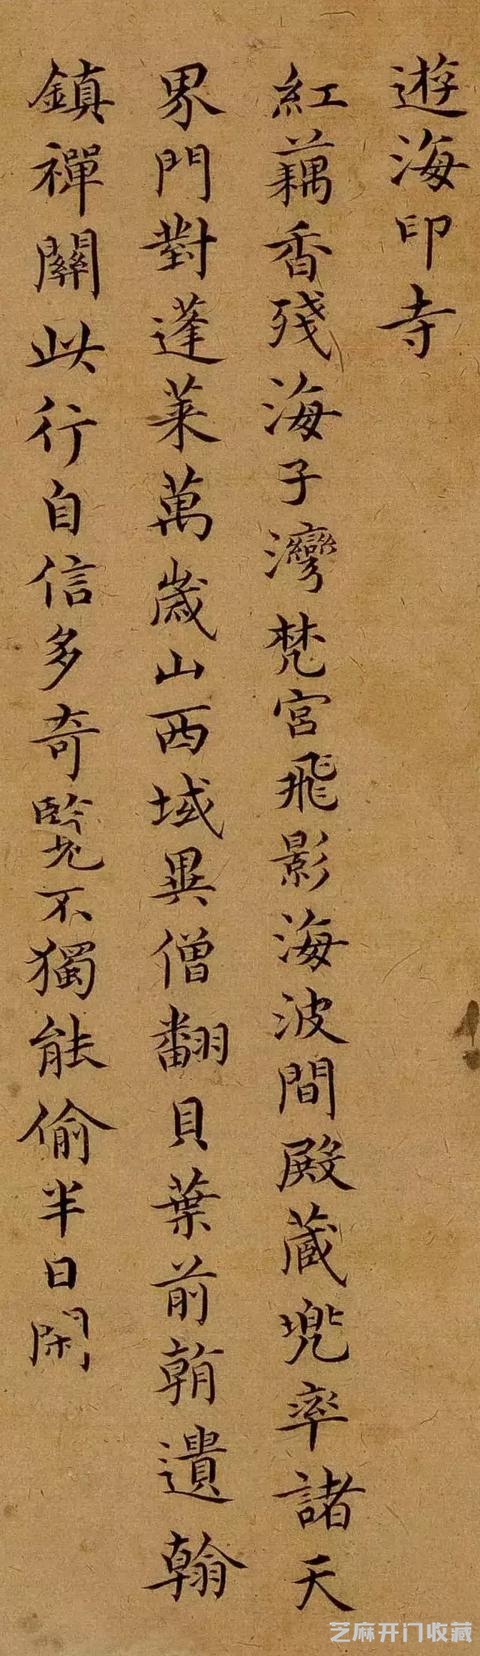 遊海印寺
紅藕香殘海子灣梵宮飛影海波間殿藏兜率諸天
界門對蓬萊萬歲山西域異僧翻貝葉前朝遺翰
鎮禪關此行自信多奇覽不獨能偷半日閑
芝麻开门收藏